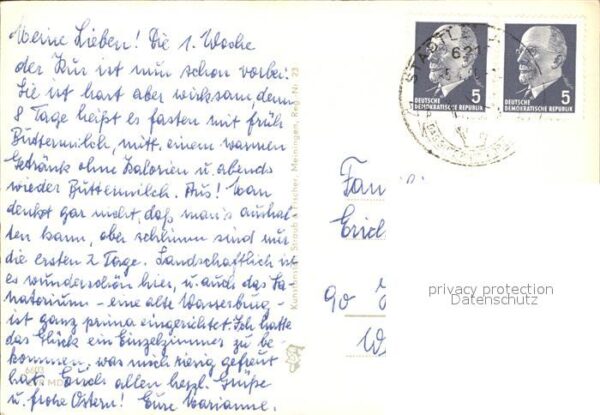 Meine Lieben! Die 1. Woche
der Kur ist nun schon vorbei!
Sie ist hart aber wirksam, denn
8 Tage heißt es fasten mit früh
Buttermilch, mitt. einem warmen
Getränk ohne Kalorien u. abends
wieder Buttermilch. Aus! Man
denkt gar nicht, daß man's aushal-
ten kann, aber schlimm sind nur
die ersten 2 Tage. Landschaftlich ist
es wunderschön hier, u. auch das Sa-
natorium - eine alte Wasserburg -
ist ganz prima eingerichtet. Ich hatte
das Glück ein Einzelzimmer zu be-
kommen, was mich riesig gefreut
hat. Euch allen herzl. Grüße
u. frohe Ostern! Eure Marianne.
Straub & Fischer, Meiningen, Reg.-Nr. 23
5
DEUTSCHE
DEMOKRATISCHE REPUBLIK
5
DEUTSCHE
DEMOKRATISCHE REPUBLIK
STADTL
621
Fam
Erich
90
privacy protection
Datenschutz